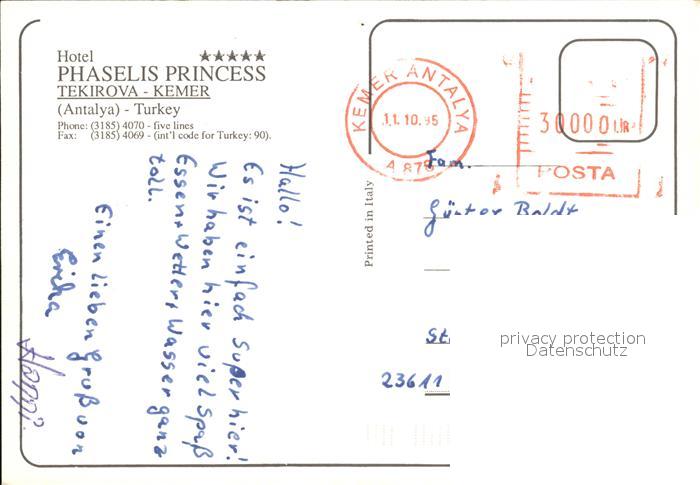 Hotel ★★★★★
PHASELIS PRINCESS
TEKIROVA - KEMER
(Antalya) - Turkey
Phone: (3185) 4070 - five lines
Fax: (3185) 4069 - (int'l code for Turkey: 90).
Hallo!
Es ist einfach Super hier!
Wir haben hier viel Spaß
Essen + Wetter + Wasser ganz
toll.
Einen lieben Gruß von
Erika
KEMER ANTALYA
11.10.95
A 876
30000 LIR
POSTA
Printed in Italy
Fam.
Günter Boldt
St
23611
privacy protection
Datenschutz